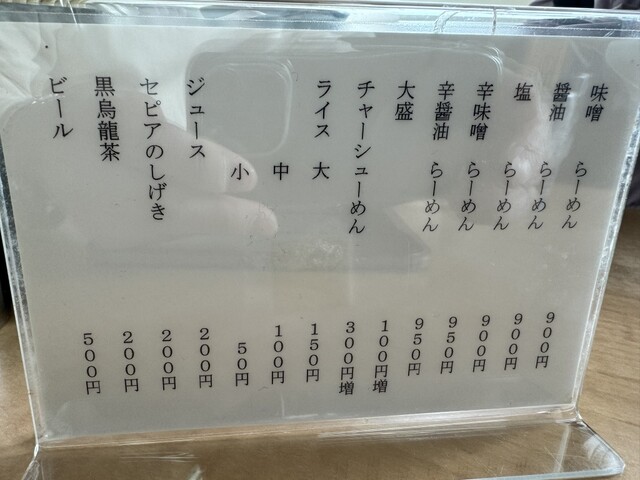 味噌 らーめん 900円
醤油 らーめん 900円
塩 らーめん 900円
辛味噌 らーめん 950円
辛醤油 らーめん 950円
大盛 100円増
チャーシューめん 300円増
ライス 大 150円
中 100円
小 50円
ジュース 200円
セピアのしげき 200円
黒烏龍茶 200円
ビール 500円